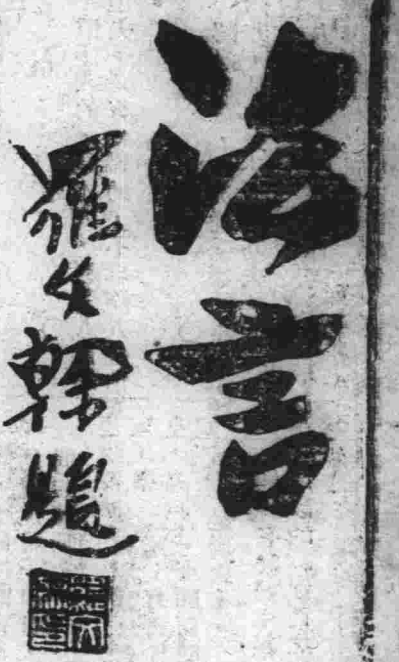 法言
羅文榦題